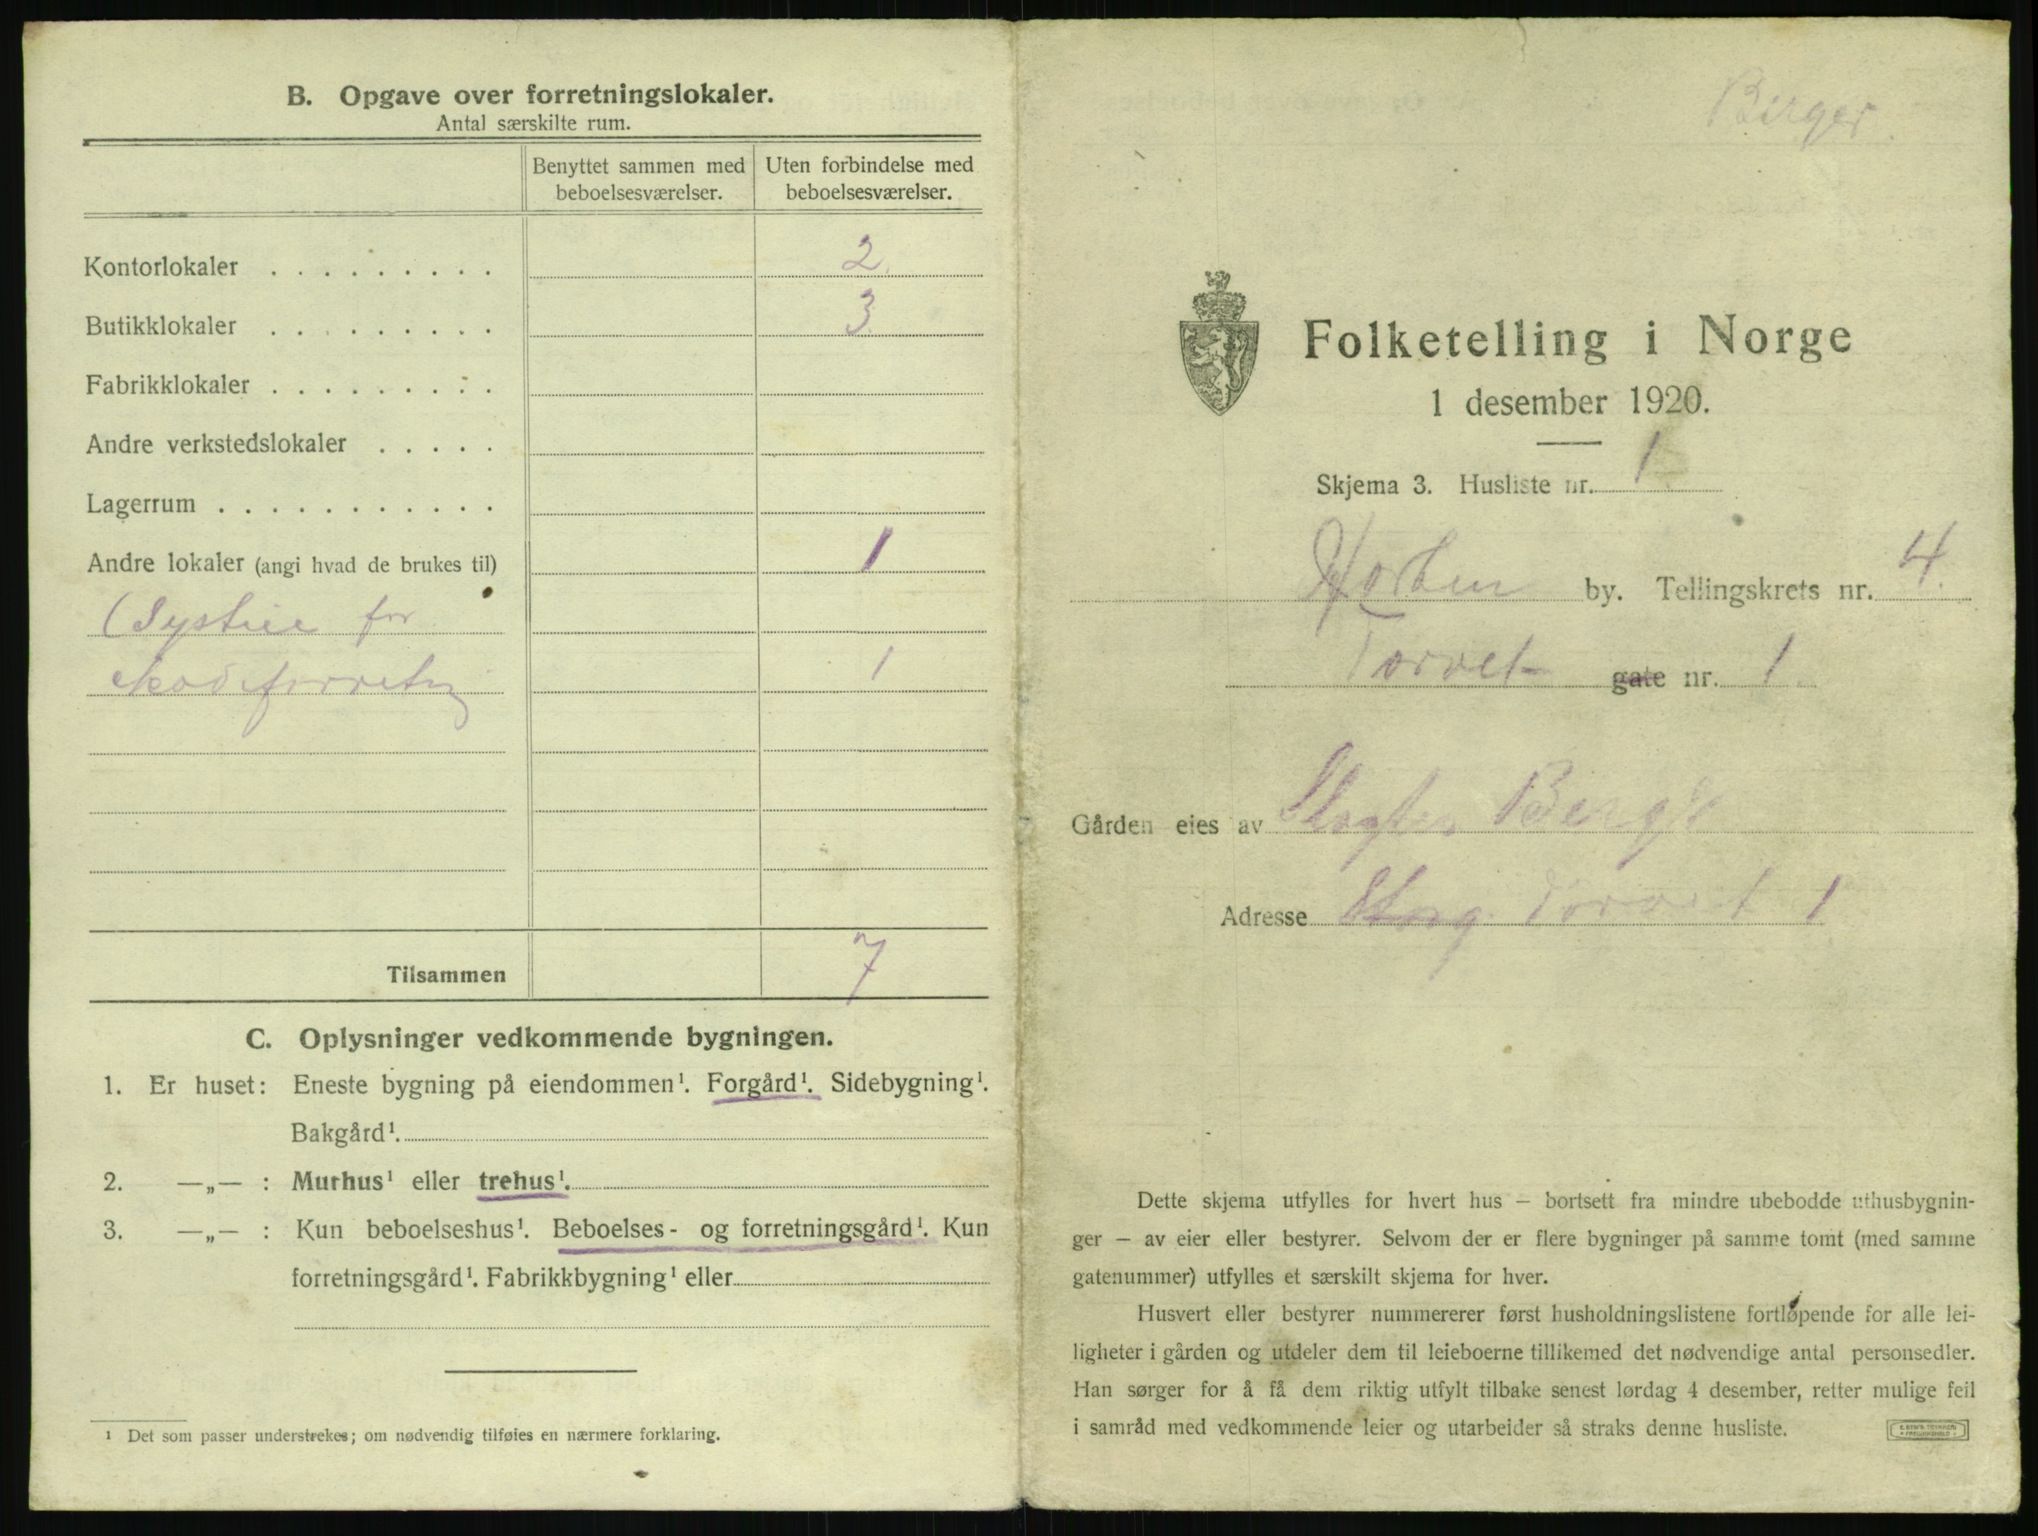 B. Opgave over forretningslokaler.
Antal særskilte rum.
Benyttet sammen med beboelsesværelser.
Uten forbindelse med beboelsesværelser.
Kontorlokaler . . . . . . . . . 2.
Butikklokaler . . . . . . . . . 3.
Fabrikklokaler . . . . . . . . .
Andre verkstedslokaler . . . . .
Lagerrum . . . . . . . . . . .
Andre lokaler (angi hvad de brukes til) 1
(Systue for
1
Tilsammen 7
C. Oplysninger vedkommende bygningen.
1. Er huset: Eneste bygning på eiendommen¹. Forgård¹. Sidebygning¹.
Bakgård¹.
2. —„— : Murhus¹ eller trehus¹.
3. —„— : Kun beboelseshus¹. Beboelses- og forretningsgård¹. Kun
forretningsgård¹. Fabrikkbygning¹ eller
¹ Det som passer understrekes; om nødvendig tilføies en nærmere forklaring.
Berger.
Folketelling i Norge
1 desember 1920.
Skjema 3. Husliste nr. 1
Horten by. Tellingskrets nr. 4.
Torvet gate nr. 1.
Gården eies av Slagter Berge
Adresse Torvet 1
Dette skjema utfylles for hvert hus – bortsett fra mindre ubebodde uthusbygnin-
ger – av eier eller bestyrer. Selvom der er flere bygninger på samme tomt (med samme
gatenummer) utfylles et særskilt skjema for hver.
Husvert eller bestyrer nummererer først husholdningslistene fortløpende for alle lei-
ligheter i gården og utdeler dem til leieboerne tillikemed det nødvendige antal personsedler.
Han sørger for å få dem riktig utfylt tilbake senest lørdag 4 desember, retter mulige feil
i samråd med vedkommende leier og utarbeider så straks denne husliste.